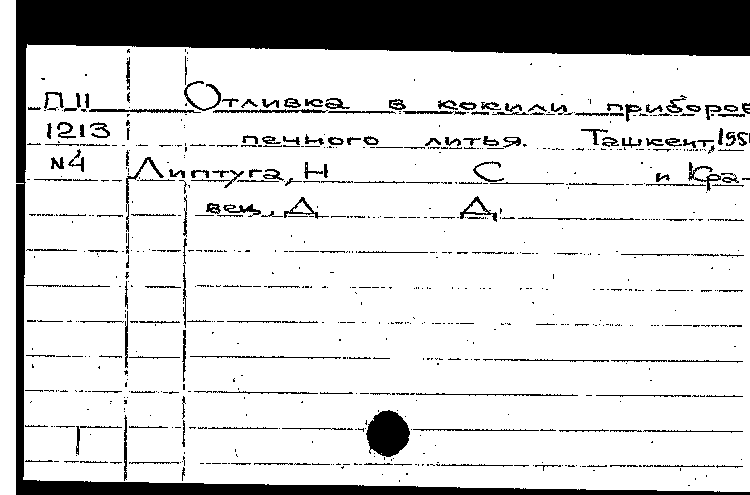 П II Отливка в кокили приборов
1213 печного литья. Ташкент, 195
N4 Липтуга, Н С и Кра-
вец, Д Д.